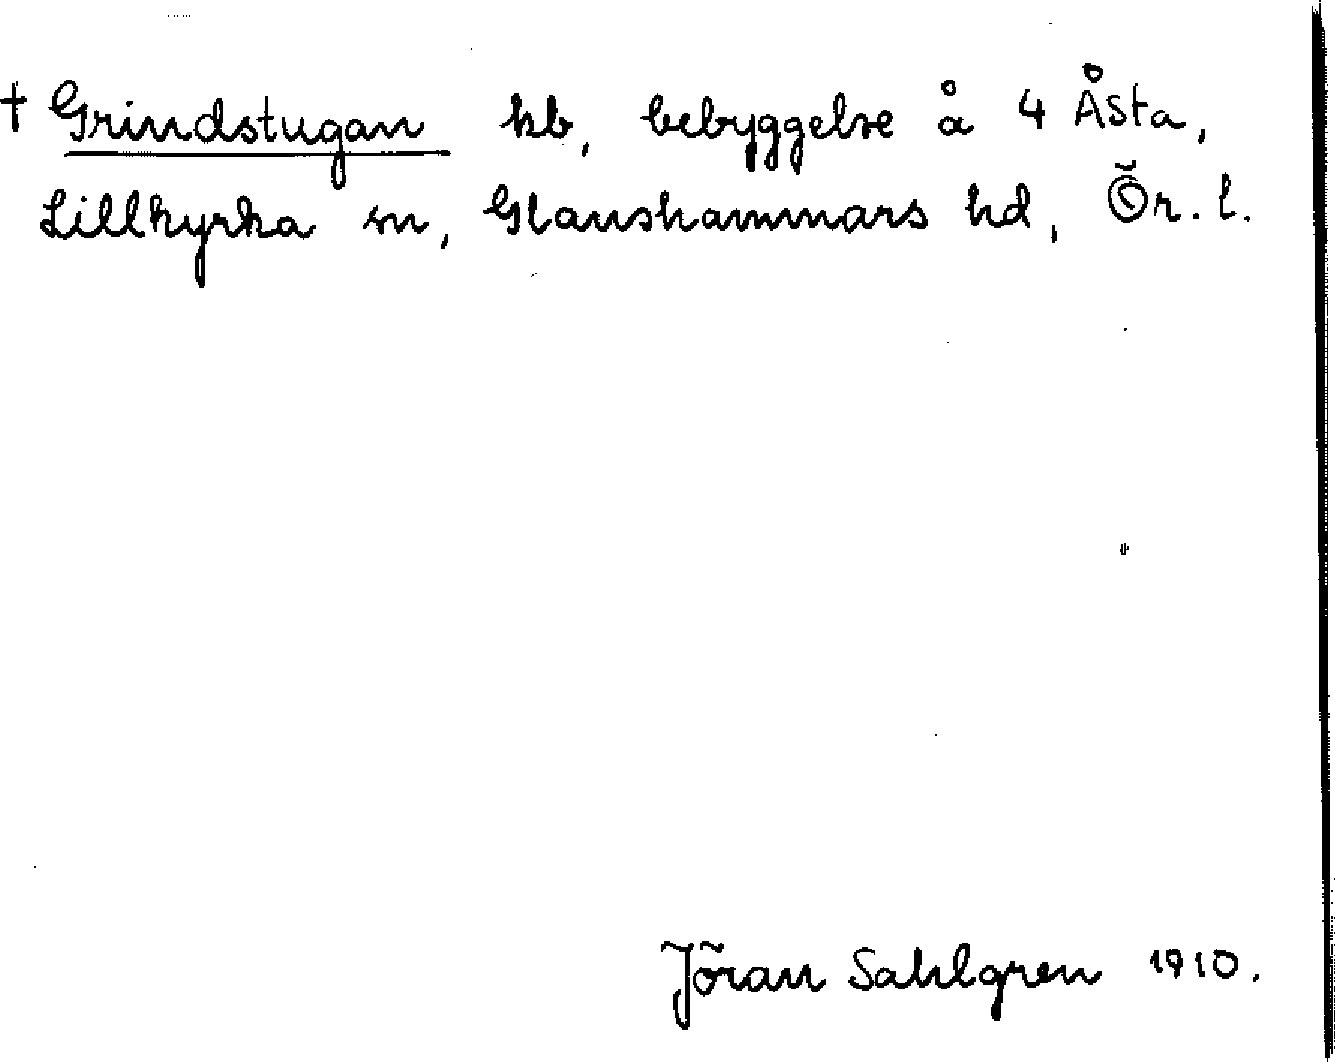 † Grindstugan hb, bebyggelse å 4 Åsta,
Lillkyrka sn, Glanshammars hd, Ör. l.
Jöran Sahlgren 1910.